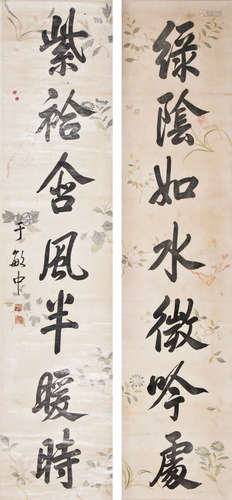 綠陰如水微吟處
紫袷含風半暖時
于敏中